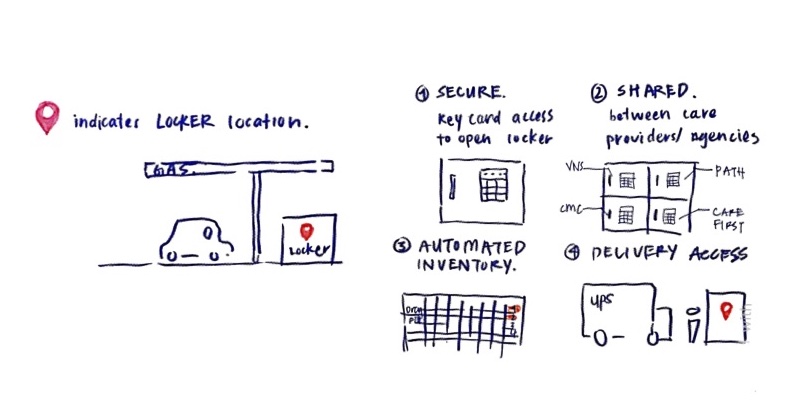 indicates LOCKER location.
GAS.
Locker
① SECURE.
key card access
to open locker
② SHARED.
between care
providers/agencies
VNS
PATH
CMC
CARE
FIRST
③ AUTOMATED
INVENTORY.
④ DELIVERY ACCESS
ups